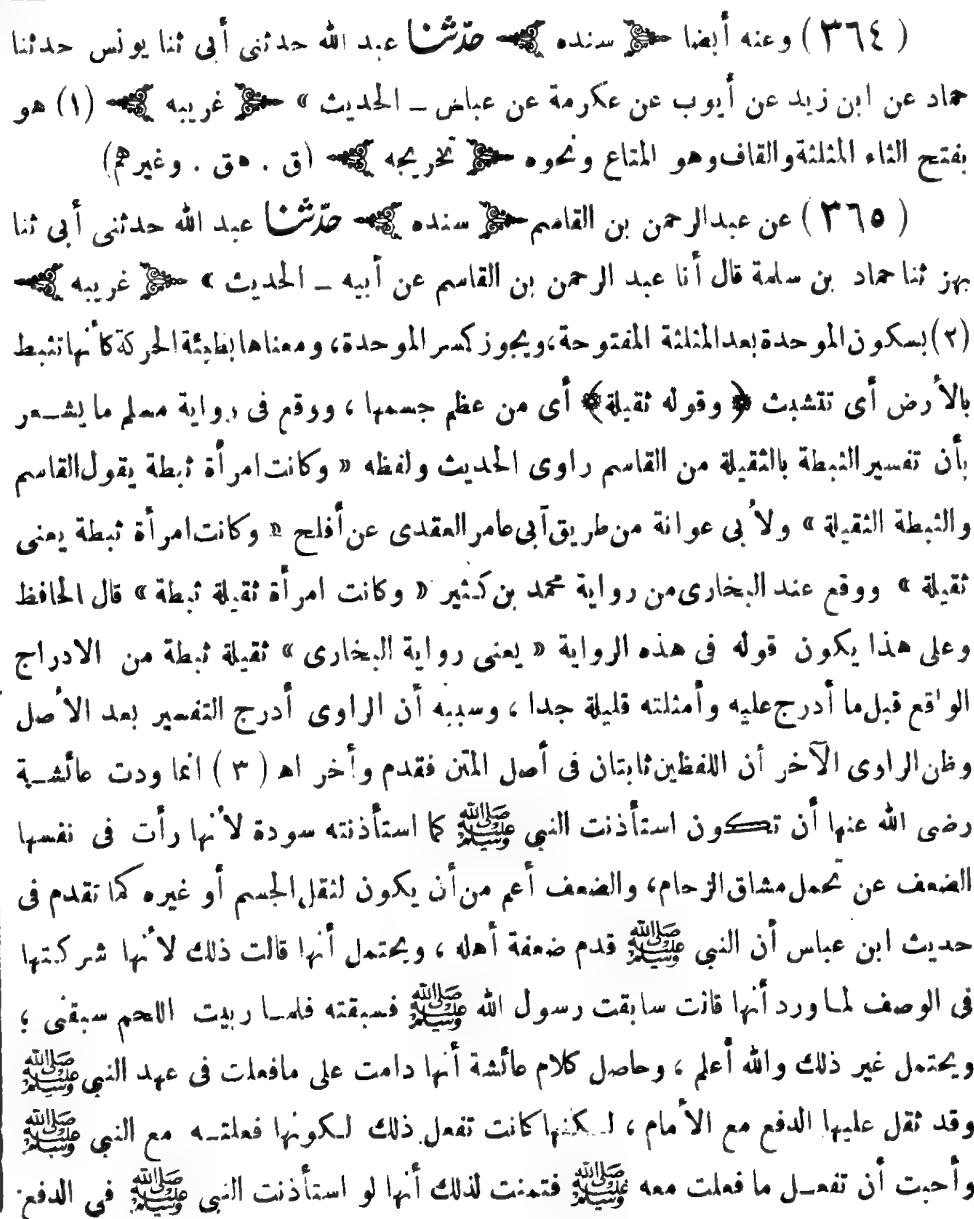 ( ٣٦٤ ) وعنه أيضا ﴿ سنده ﴾ حدّثنا عبد الله حدثنى أبى ثنا يونس حدثنا
حماد عن ابن زيد عن أيوب عن عكرمة عن عباس ــ الحديث » ﴿ غريبه ﴾ (١) هو
بفتح الثاء المثلثة والقاف وهو المتاع ونحوه ﴿ تخريجه ﴾ (ق . هق . وغيرهم)
( ٣٦٥ ) عن عبد الرحمن بن القاسم ﴿ سنده ﴾ حدّثنا عبد الله حدثنى أبى ثنا
بهز ثنا حماد بن سلمة قال أنا عبد الرحمن بن القاسم عن أبيه ــ الحديث » ﴿ غريبه ﴾
(٢) بسكون الموحدة بعد المثلثة المفتوحة، ويجوز كسر الموحدة، ومعناها بطيئة الحركة كأنها تثبط
بالأرض أى تتشبث ﴿ وقوله ثقيلة ﴾ أى من عظم جسمها ، ووقع فى رواية مسلم ما يشـعر
بأن تفسير الثبطة بالثقيلة من القاسم راوى الحديث ولفظه « وكانت امرأة ثبطة يقول القاسم
والثبطة الثقيلة » ولأبى عوانة من طريق أبى عامر العقدى عن أفلح « وكانت امرأة ثبطة يعنى
ثقيلة » ووقع عند البخارى من رواية محمد بن كثير « وكانت امرأة ثقيلة ثبطة » قال الحافظ
وعلى هذا يكون قوله فى هذه الرواية « يعنى رواية البخارى » ثقيلة ثبطة من الادراج
الواقع قبل ما أدرج عليه وأمثلته قليلة جدا ، وسببه أن الراوى أدرج التفسير بعد الأصل
وظن الراوى الآخر أن اللفظين ثابتان فى أصل المتن فقدم وأخر اهـ ( ٣ ) انما ودت عائشـة
رضى الله عنها أن تكون استأذنت النبى ﷺ كما استأذنته سودة لأنها رأت فى نفسها
الضعف عن تحمل مشاق الزحام، والضعف أعم من أن يكون لثقل الجسم أو غيره كما تقدم فى
حديث ابن عباس أن النبى ﷺ قدم ضعفة أهله ، ويحتمل أنها قالت ذلك لأنها شركتها
فى الوصف لمـا ورد أنها قالت سابقت رسول الله ﷺ فسبقته فلمـا ربيت اللحم سبقنى ؛
ويحتمل غير ذلك والله أعلم ، وحاصل كلام عائشة أنها دامت على ما فعلت فى عهد النبى ﷺ
وقد ثقل عليها الدفع مع الأمام ، لـكنها كانت تفعل ذلك لـكونها فعلتـه مع النبى ﷺ
وأحبت أن تفعـل ما فعلت معه ﷺ فتمنت لذلك أنها لو استأذنت النبى ﷺ فى الدفع